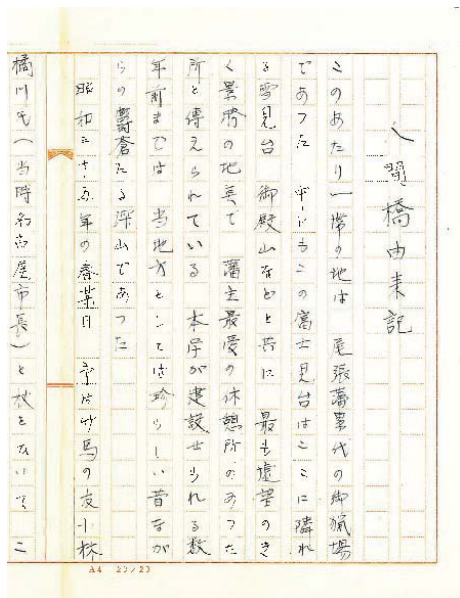 橋由来記
このあたり一帯の地は 尾張藩累代の御猟場
であつた 中にもこの富士見台はここに隣れ
る雪見台 御殿山などと共に 最も遠望のき
く景勝の地点で 藩主最愛の休憩所のあつた
所と傳えられている 本屋が建設せられる数
年前までは 当地方としては珍らしい昔なが
らの欝蒼たる深山であつた
昭和 年の春某日 余は竹馬の友小林
橘川氏(当時名古屋市長)と杖をひいて こ
A4 20/20